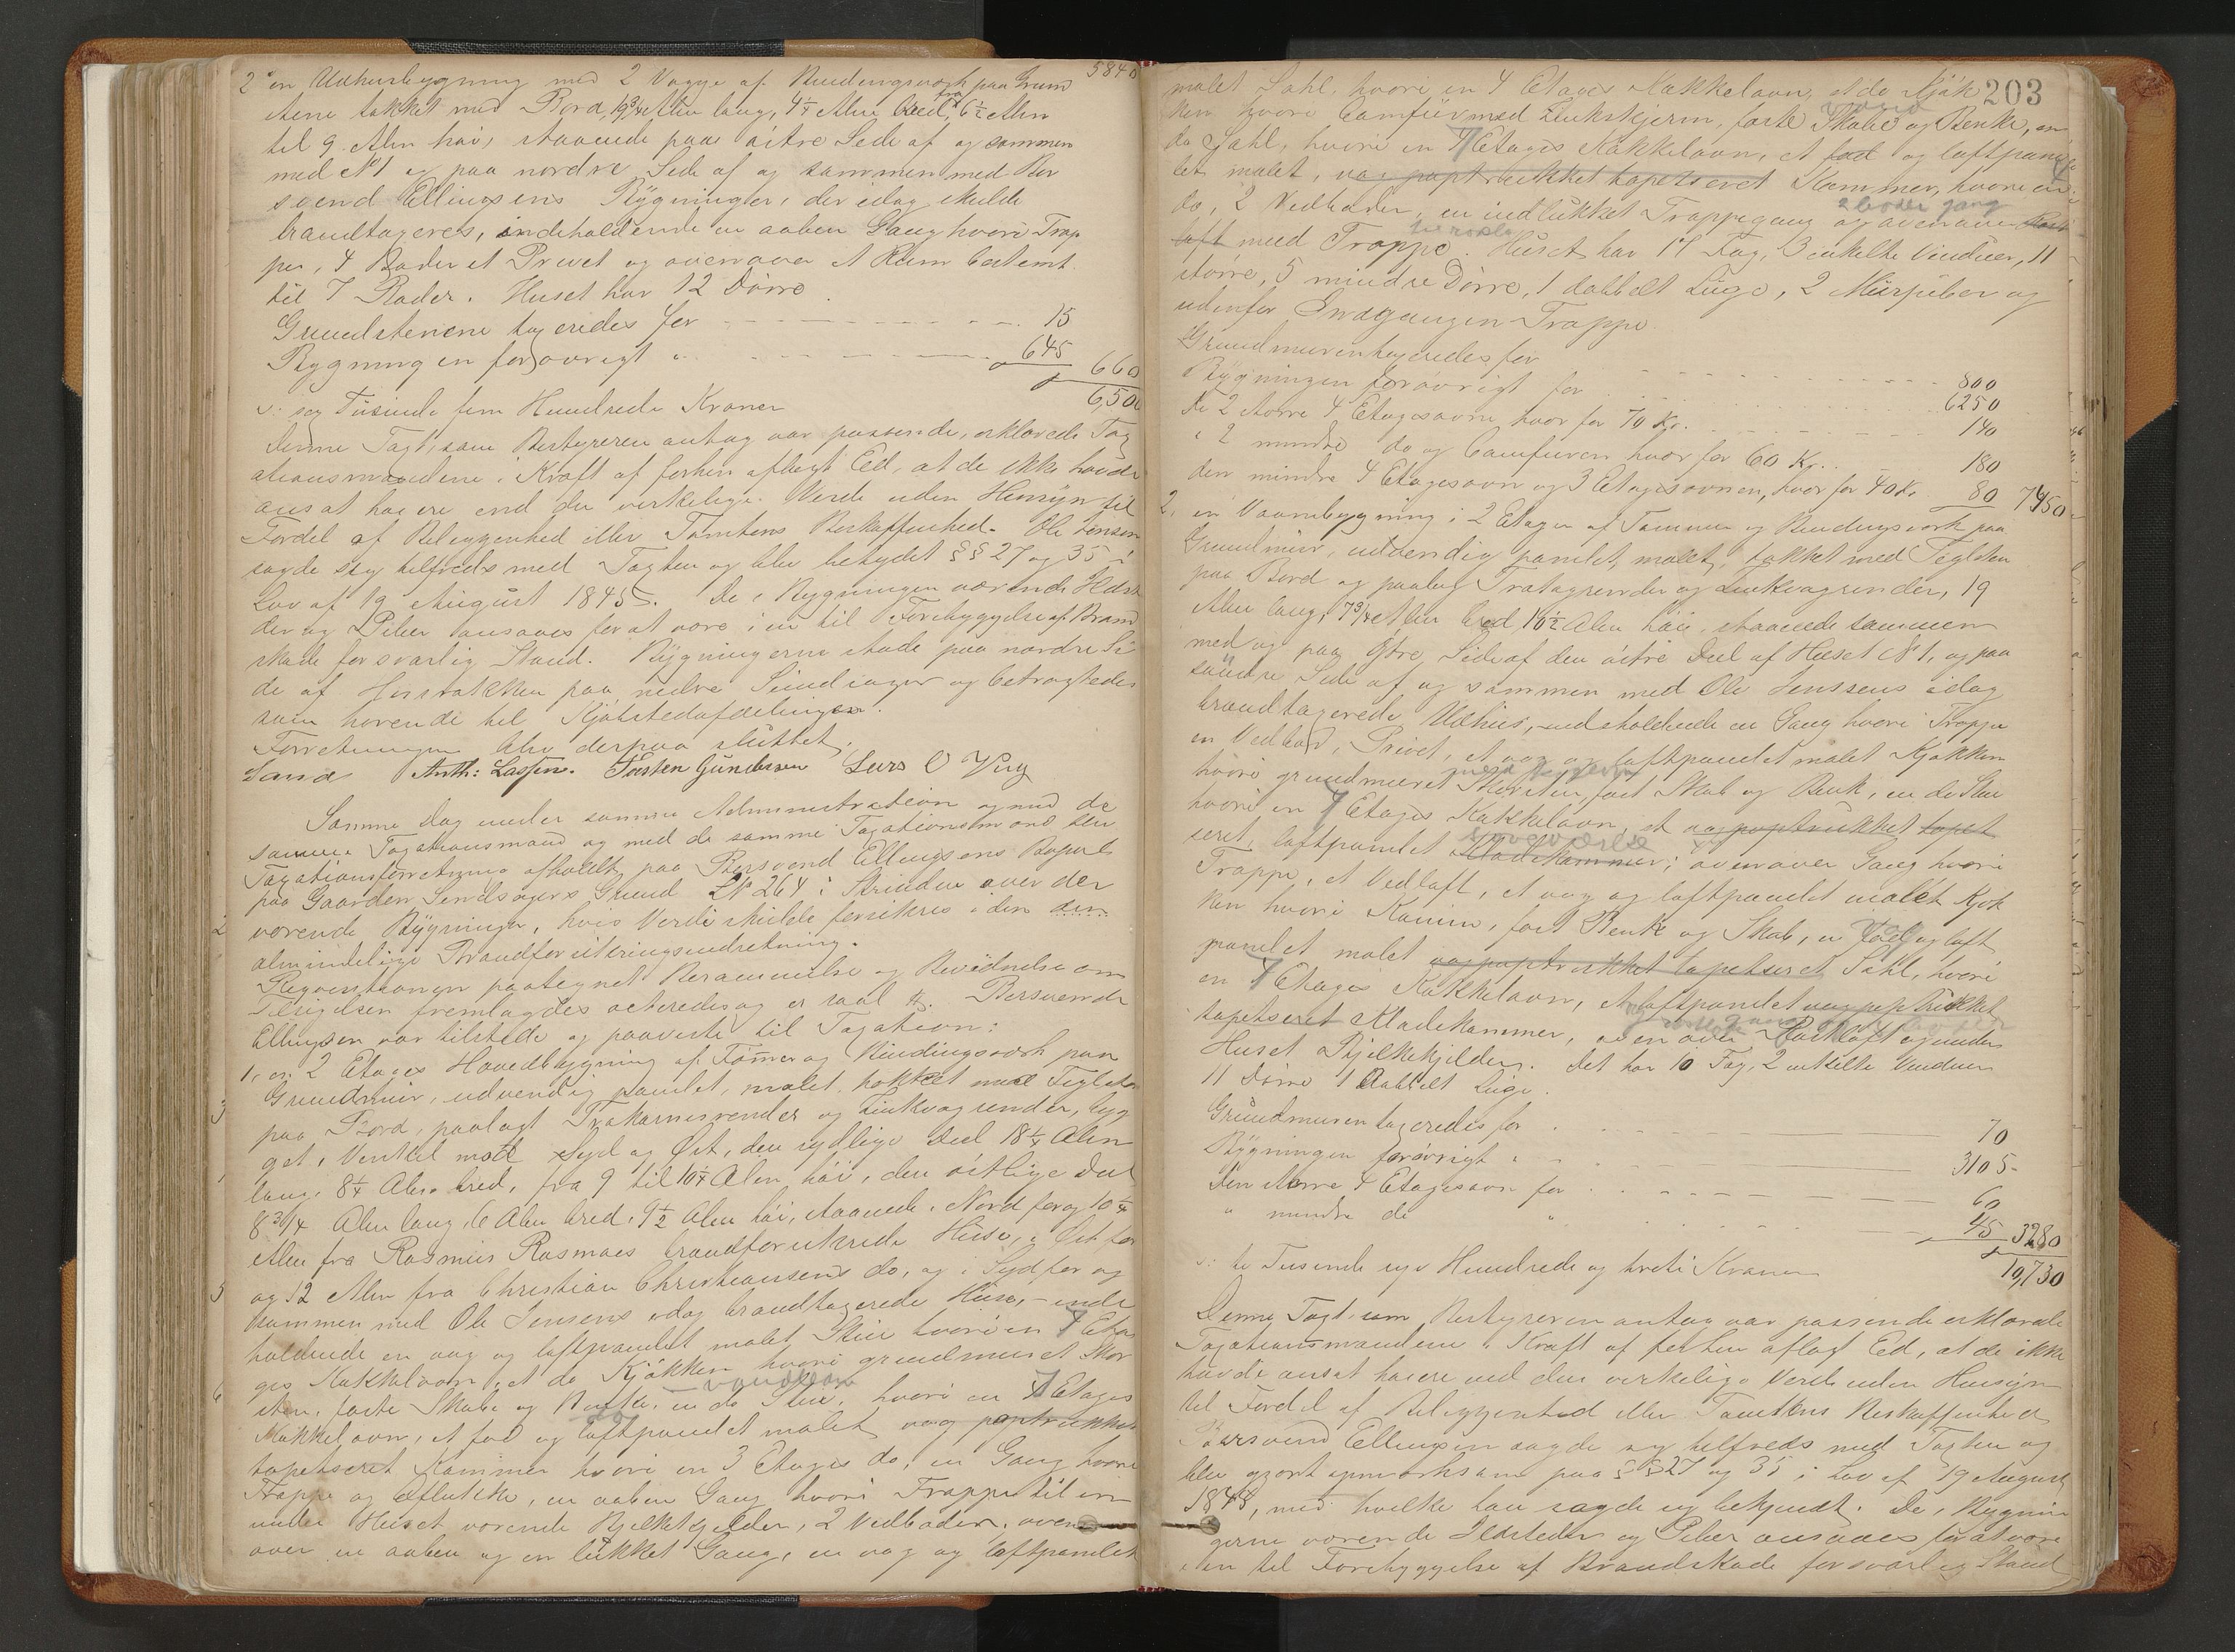 5840
2 en Udhusbygning med 2 Vægge af Bindingsværk paa Grund
stene tækket med Bord, 19 3/4 Alen lang, 4 1/4 Alen bred, fra 6 1/2 Alen
til 9 Alen høi, staaende paa østre Side af og sammen
med No 1 og paa nordre Side af og sammen med Ber
svend Ellingsens Bygninger, der idag skulde
brandtaxeres, indeholdende en aaben Gang hvori Trap
pe, 4 Boder et Privet og ovenover et Rum bestemt
til 7 Boder. Huset har 12 Dørre.
Grundstenene taxeredes for 15
Bygningen forøvrigt " 645 660
6,500
o: sex Tusinde fem Hundrede Kroner
Denne Taxt, som Bestyreren antog var passende, erklærede Tax
ationsmændene i Kraft af forhen aflagt Ed, at de ikke havde
ansat høiere end den virkelige Værdi uden Hensyn til
Fordel af Beliggenhed eller Tomtens Beskaffenhed. Ole Jensen
sagde sig tilfreds med Taxten og blev betydet §§ 27 og 35 i
Lov af 19 August 1845. De i Bygningen værende Ildste
der og Piber ansaaes for at være i en til Forebyggelse af Brand
skade forsvarlig Stand. Bygningerne stode paa nordre Si
de af paa nedre Sendsager og betragtedes
som hørende til Kjøbstedafdelingen.
Forretningen blev derpaa sluttet.
Sand Anth: Lassen. Torsten Gundersen Lars O Vug
Samme Dag under samme Administration og med de
samme Taxationsmænd og med de samme Taxationsmænd blev
Taxationsforretning afholdt paa Bersvend Ellingsens Bopæl
paa Gaarden Sendsagers Grund LNo 264 i Strinden over der
værende Bygninger, hvis Værdi skulde forsikres i den
almindelige Brandforsikringsindretning.
Reqvisitionen paategnet Berammelse og Bevidnelse om
Tilsigelsen fremlagdes acteredes og er saal #. Bersvend
Ellingsen var tilstede og paaviste til Taxation:
1, en 2 Etages Hovedbygning af Tømmer og Bindingsværk paa
Grundmur, udvendig panelet, malet, tækket med Teglsten
paa Bord, paalagt Trætagrender og Zinkvagrender, byg
get i Vinkel mod Syd og Øst, den sydlige Deel 18 1/4 Alen
lang, 8 1/4 Alen bred, fra 9 til 10 1/4 Alen høi, den østlige Deel
8 3/4 Alen lang, 6 Alen bred, 9 1/2 Alen høi, staaende i Nord for og 10 1/4
Alen fra Rasmus Rasmoes brandforsikrede Huse, i Øst for
og 12 Alen fra Christian Christiansens do, og i Syd for og
sammen med Ole Jensens idag brandtaxerede Huse, - inde
holdende en væg og loftpanelet malet Stue hvori en 4 Eta
ges Kakkelovn, et do Kjøkken hvori grundmuret Skor
sten, faste Skabe og Bænke, en do Stue, hvori en 4 Etages
Kakkelovn, et fod og loftpanelet malet væg paptrukket
tapetseret Kammer hvori en 3 Etages do, en Gang hvori
Trappe og Aflukke, en aaben Gang hvori Trappe til en
under Huset værende Bjelkekjelder, 2 Vedboder, oven
over en aaben og en lukket Gang, en væg og loftpanelet
203
malet Sahl, hvori en 4 Etages Kakkelovn, et do Kjøk
ken hvori Comfur med Zinkskjerm, faste Skabe og Bænke, en
do Sahl, hvori en 4 Etages Kakkelovn, et fod og loftpane
let malet, væg paptrukket tapetseret Kammer, hvori en
do, 2 Vedboder, en indlukket Trappegang og ovenover Mørk
loft med Trappe. Huset har 17 Fag, 3 enkelte Vinduer, 11
større, 5 mindre Dørre, 1 dobbelt Luge, 2 Murpiber og
udenfor Indgangen Trappe.
Grundmuren taxeredes for 800
Bygningen forøvrigt for 6250
De 2 større 4 Etagesovne hver for 70 Kr. 140
" 2 mindre do og Comfuren hver for 60 Kr. 180
den mindre 4 Etagesovn og 3 Etagesovnen, hver for 40 Kr 80 7450
2, en Vaanebygning i 2 Etager af Tømmer og Bindingsværk paa
Grundmur, udvendig panelet, malet, tækket med Teglsten
paa Bord og paalagt Trætagrender og Zinkvagrender, 19
Alen lang, 7 3/4 Alen bred, 10 1/2 Alen høi, staaende sammen
med og paa østre Side af den østre Deel af Huset No 1, og paa
søndre Side af og sammen med Ole Jenssens idag
brandtaxerede Udhus, indeholdende en Gang hvori Trappe
en Vedbod, Privet, et væg og loftpanelet malet Kjøkken
hvori grundmuret Skorsten, fast Skab og Bænk, en do Stue
hvori en 4 Etages Kakkelovn, et væg paptrukket tapet
seret, loftpanelet Klædekammer; ovenover Gang hvori
Trappe, et Vedloft, et væg og loftpanelet malet Kjøk
ken hvori Kamin, fast Bænk og Skab, en fod og loft
panelet malet væg paptrukket tapetseret Sahl, hvori
en 4 Etages Kakkelovn, et loftpanelet væg paptrukket
tapetseret Klædekammer, ovenover Mørkloft og under
Huset Bjelkekjelder. Det har 10 Fag, 2 enkelte Vinduer
11 Dørre 1 dobbelt Luge.
Grundmuren taxeredes for 70
Bygningen forøvrigt " 3105
Den større 4 Etagesovn for 60
" mindre do " 45 3280
10,730
o: ti Tusinde syv Hundrede og treti Kroner
Denne Taxt som Bestyreren antog var passende erklærede
Taxationsmændene i Kraft af forhen aflagt Ed, at de ikke
havde ansat høiere end den virkelige Værdi uden Hensyn
til Fordel af Beliggenhed eller Tomtens Beskaffenhed
Bersvend Ellingsen sagde sig tilfreds med Taxten og
blev gjort opmærksom paa §§ 27 og 35 i Lov af 19 August
1845, med hvilke han sagde sig bekjendt. De i Bygnin
gerne værende Ildsteder og Piber ansaaes for at være
i en til Forebyggelse af Brandskade forsvarlig Stand